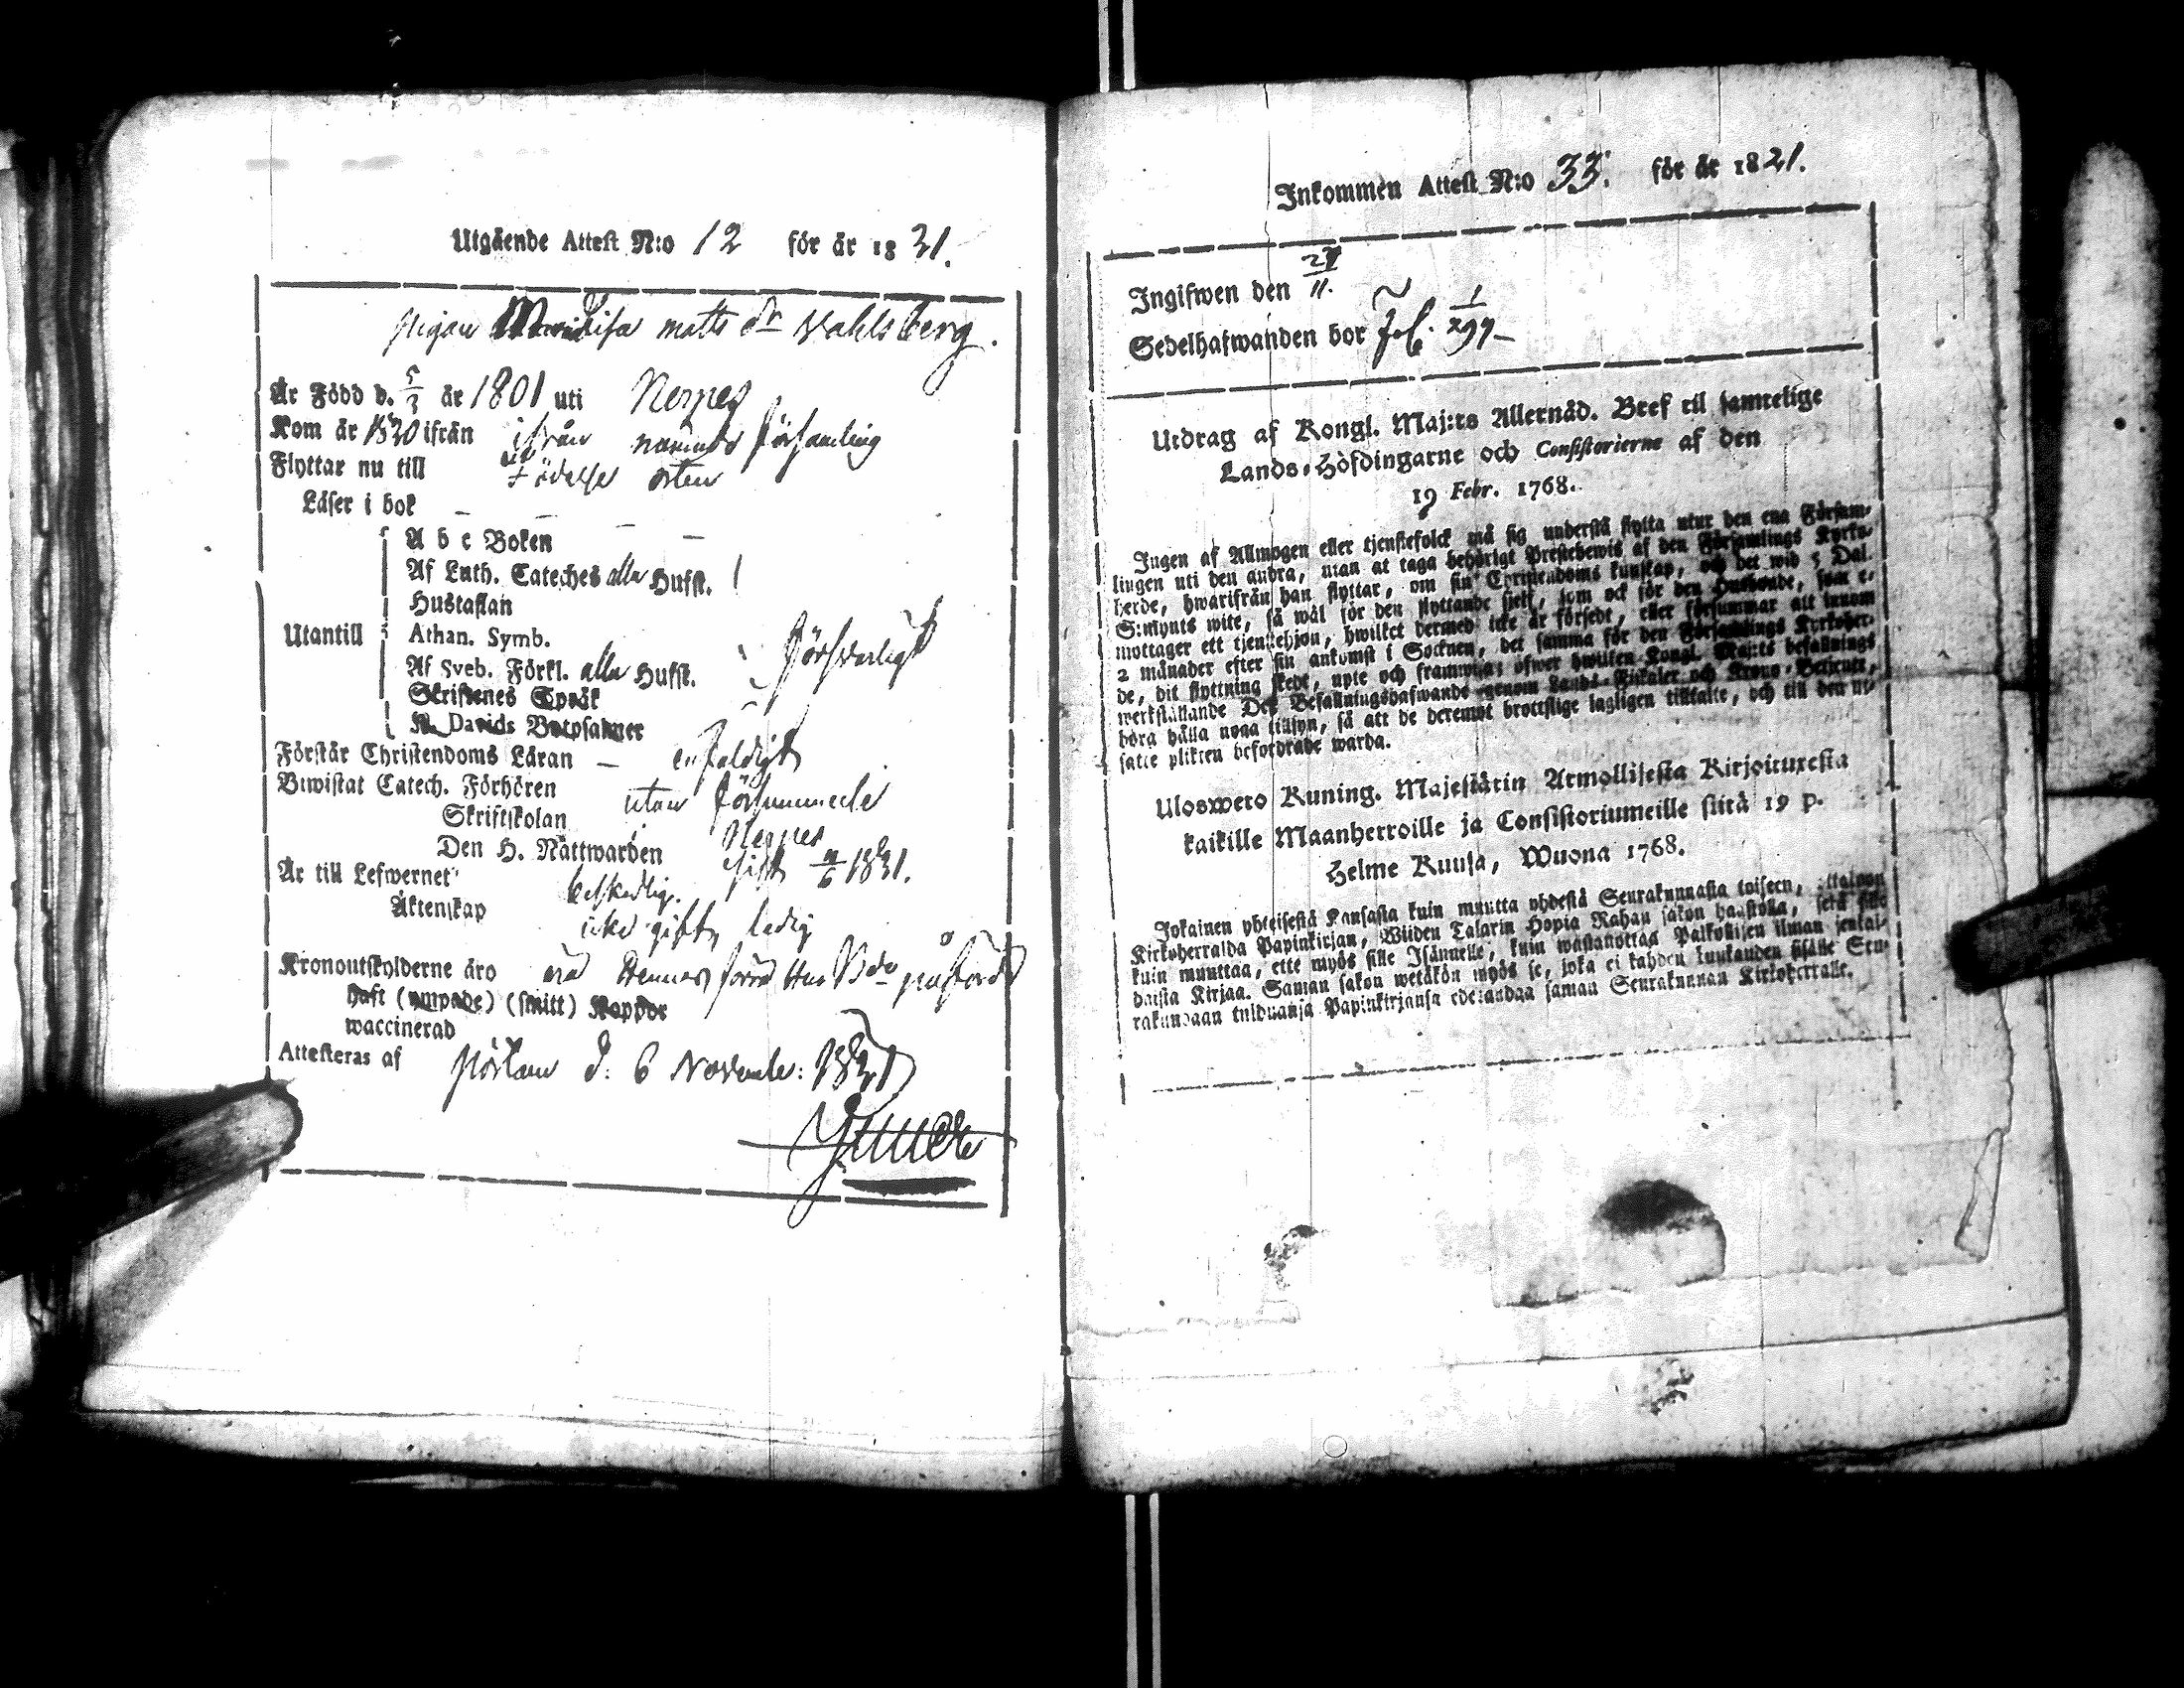 Utgående Attest N:o 12 för år 1821.
pigan Maria Lisa matts dr Wahlsberg.
Är Född d. 5/3 år 1801 uti Nerpes
Kom år 1820 ifrån ifrån nämnde församling
Flyttar nu till Födelse orten
Läser i bok
A b c Boken
Af Luth. Cateches alla Hufst.
Hustaflan
Utantill Athan. Symb. försvarligt
Af Sveb. Förkl. alla Hufst.
Skriftenes Språk
K. Davids Botpsalmer
Förstår Christendoms Läran enfaldigt
Bewistat Catech. Förhören utan försummelse
Skriftskolan Nerpes
Den H. Nattwarden sist 1821.
Är till Lefwernet beskedlig.
Äktenskap icke gift, ledig
Kronoutskylderne äro förra
Haft (ympade) (smitt) Koppor
waccinerad
Attesteras af Pörtom d. 6 November: 1821
Inkommen Attest N:o 33. för år 1821.
Ingifwen den 11.
Sedelhafwanden bor Fol. 1/297
Utdrag af Kongl. Maj:ts Allernåd. Bref til samtelige
Lands-Höfdingarne och Consistorierne af den
19 Febr. 1768.
Ingen af Allmogen eller tjenstefolck må sig understå flytta utur den ena Församlingen
lingen uti den andra, utan at taga behörigt Prestebewis af den Församlings Kyrko-
herde, hwarifrån han flyttar, om sin Christendoms kunskap, och det wid 5 Dal.
S:mynts wite, så wäl för den flyttande sjelf, som ock för den Husbonde, som e-
mottager ett tjenstehjon, hwilket dermed icke är försedt, eller försummar att innom
2 månader efter sin ankomst i Socknen, det samma för den Församlings Kyrkoher-
de, dit flyttning skedt, upte och framwisa; öfwer hwilken Kongl. Maj:ts befallnings
werkställande Des Befallningshafwande genom Lands-Fiskaler och Krono-Betjente,
böra hålla noga tillsyn, så att de deremot brottslige lagligen tilltalte, och till den ut-
satte plikten befordrade warda.
Uloswето Kuning. Majestätin Armollisesta Kirjoituxesta
kaikille Maanherroille ja Consistoriumeille siitä 19 p.
Helme Kuusa, Wuona 1768.
Jokainen yhteisestä Kansasta kuin muutta yhdestä Seurakunnasta toiseen, ottakoon
Kirkoherralda Papinkirjan, Wiiden Talarin Hopia Rahan sakon haastolla, sekä sille
kuin muuttaa, ette myös sille Isännelle, kuin wastanottaa Palkollisen ilman senkal-
daista Kirjaa. Saman sakon wetäkön myös se, joka ei kahden kuukauden sisälle Seu-
rakundaan tulduansa Papinkirjansa edesandaa saman Seurakunnan Kirkoherralle.